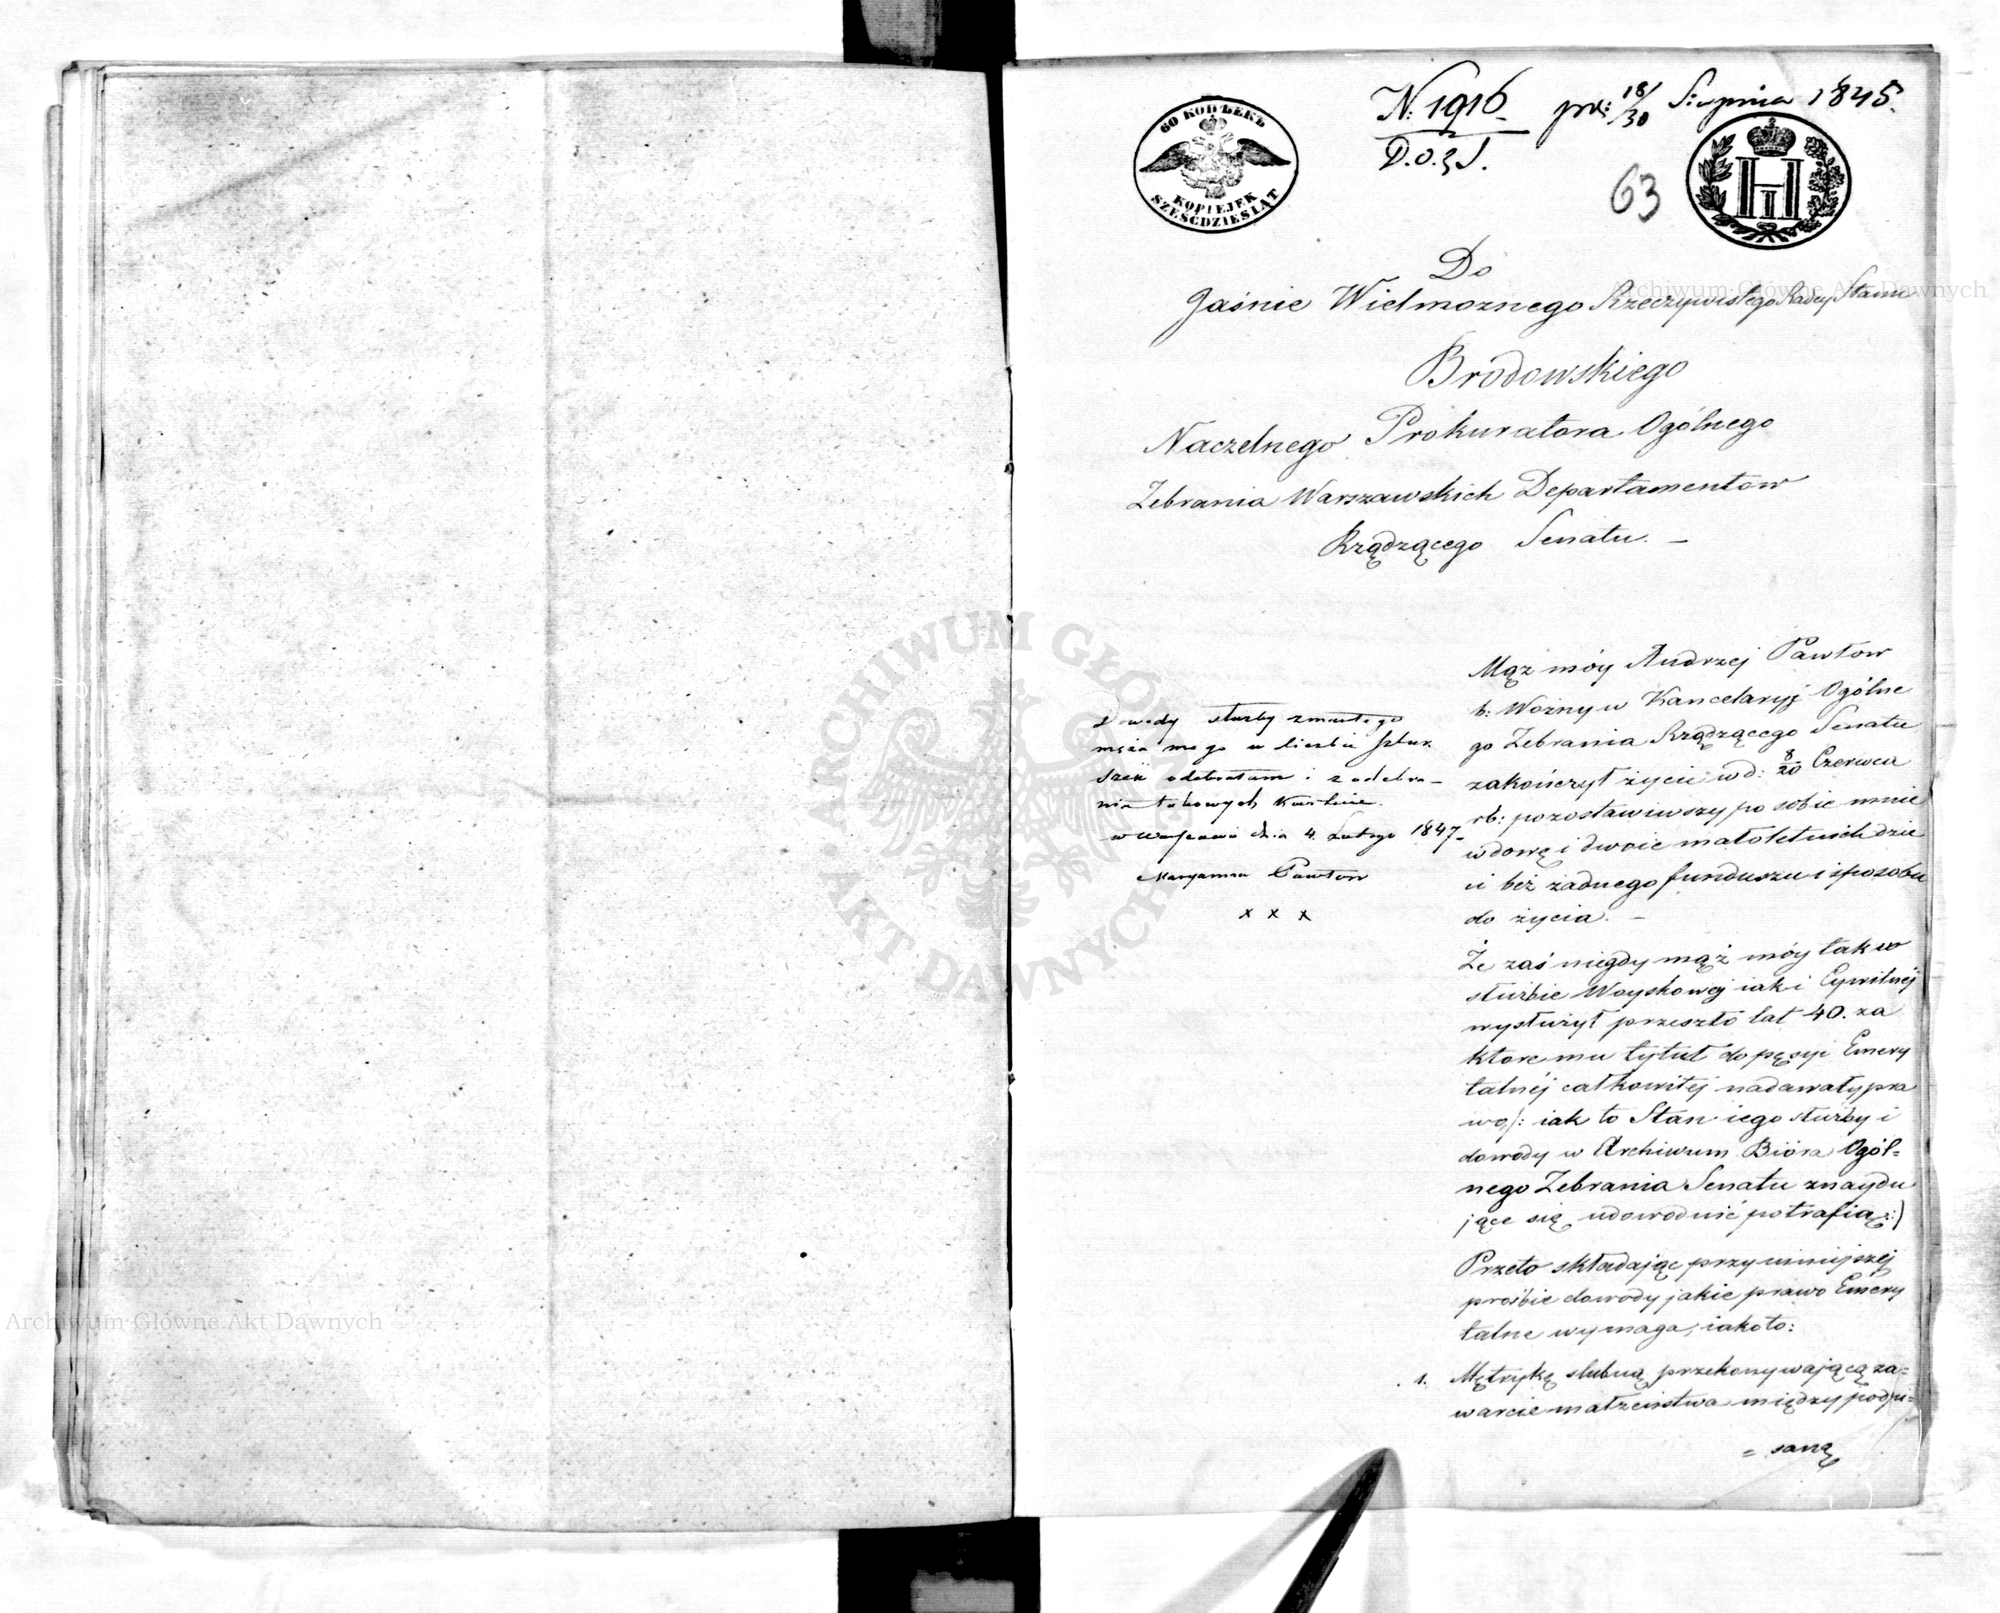 N: 1916 prz: 18/30 Sierpnia 1845.
D.O.Z.S.
60 КОПѢЕКЪ
KOPIEJEK
SZEŚĆDZIESIĄT
63
Do
Jaśnie Wielmożnego Rzeczywistego Radcy Stanu
Brodowskiego
Naczelnego Prokuratora Ogólnego
Zebrania Warszawskich Departamentów
Rządzącego Senatu. —
Dowody służby zmarłego
męża mego w liczbie sztuk
sześć odebrałam i z odebra-
nia takowych kwituie.
w Warszawie dnia 4. Lutego 1847.
Maryanna Pawłow
x x x
Mąż móy Andrzej Pawłow
b: Woźny w Kancelaryj Ogólne
go Zebrania Rządzącego Senatu
zakończył życie w d: 8/20 Czerwca
rb: pozostawiwszy po sobie mnie
wdowę i dwoie małoletnich dzie
ci beż żadnego funduszu i sposobu
do życia. —
Że zaś niegdy mąż móy tak w
służbie Woyskowej iak i Cywilnéj
wysłużył przeszło lat 40. za
ktore mu tytuł do pęsyi Emery
talnéj całkowitej nadawały pra
wo /: iak to Stan iego służby i
dowody w Archiwum Bióra Ogól=
nego Zebrania Senatu znaydu
jące się udowodnić potrafią :)
Przeto składając przy niniejszéj
prośbie dowody jakie prawo Emery
talne wymaga, iako to:
1. Mętrykę slubną przekonywającą za=
warcie małżeństwa między podpi=
= saną
Archiwum Główne Akt Dawnych
Archiwum Główne Akt Dawnych
ARCHIWUM GŁÓWNE
AKT DAWNYCH